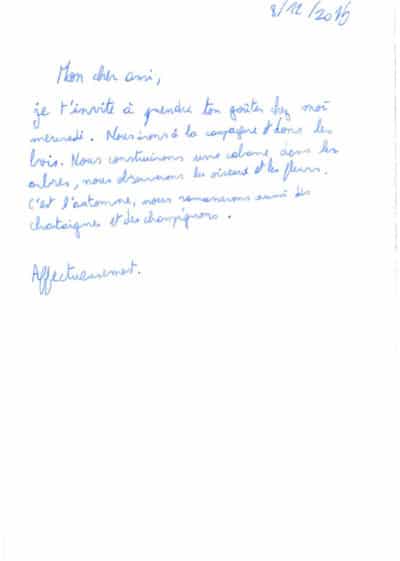 8/12/2015
Mon cher ami,
je t'invite à prendre ton goûter chez moi
mercredi. Nous irons à la campagne et dans les
bois. Nous construirons une cabane dans les
arbres, nous observerons les oiseaux et les fleurs.
C'est l'automne, nous ramasserons aussi des
chataignes et des champignons.
Affectueusement.